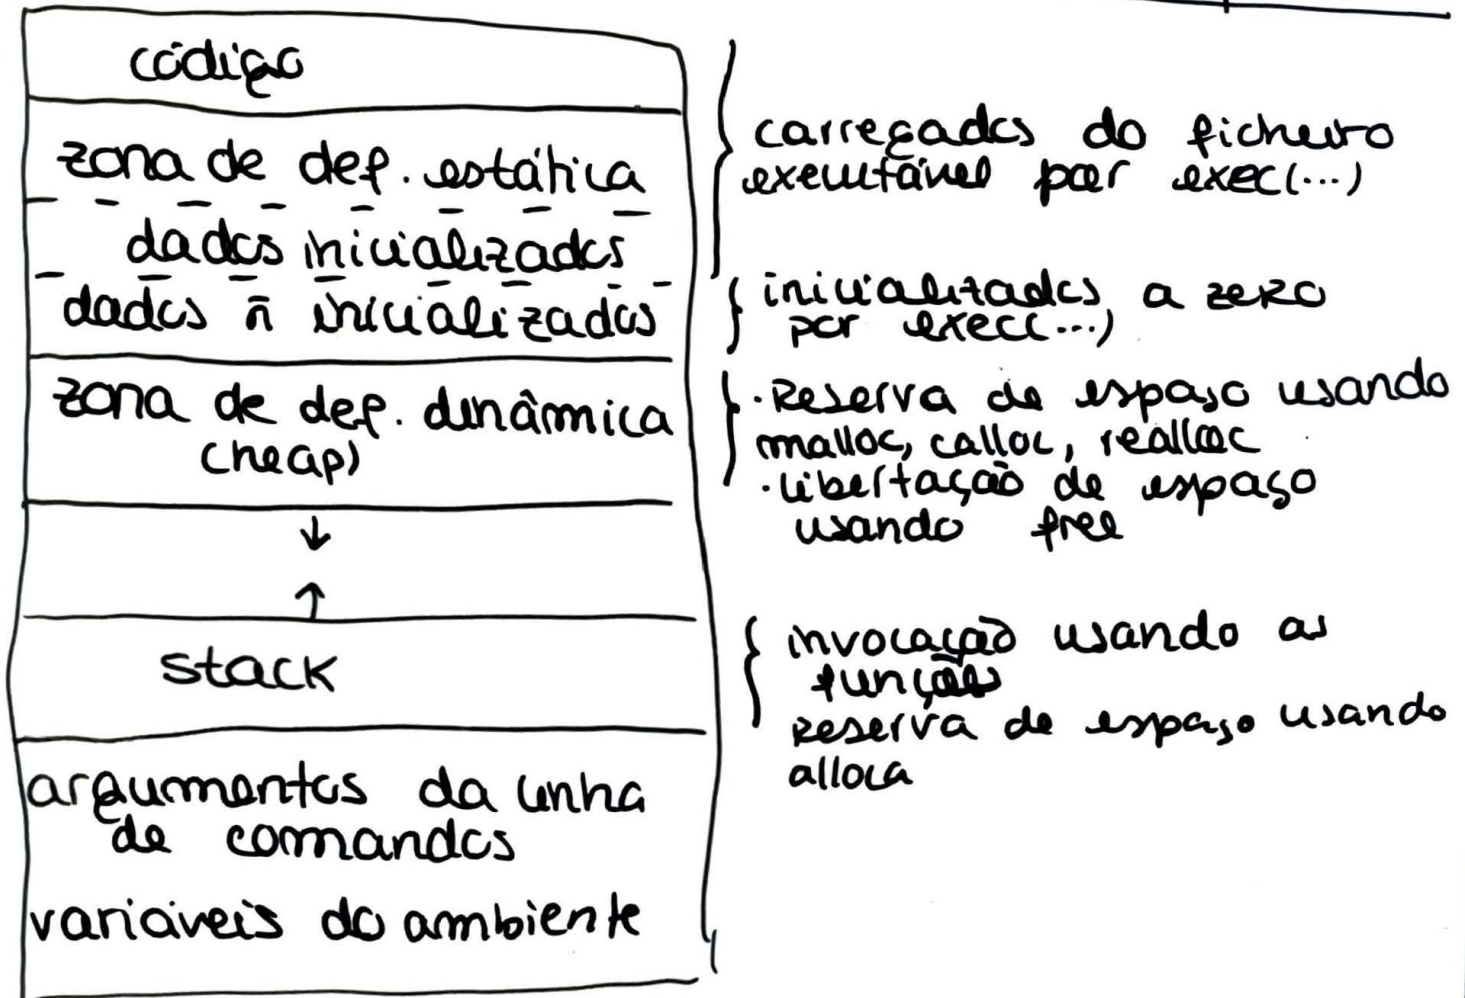 código
zona de def. estática
dados inicializados
dados ñ inicializados
zona de def. dinâmica
(heap)
↓
↑
stack
argumentos da linha
de comandos
variáveis do ambiente
carregados do ficheiro
executável por exec(...)
inicializados a zero
por exec(...)
· Reserva de espaço usando
malloc, calloc, realloc
· libertação de espaço
usando free
invocação usando as
funções
Reserva de espaço usando
alloca